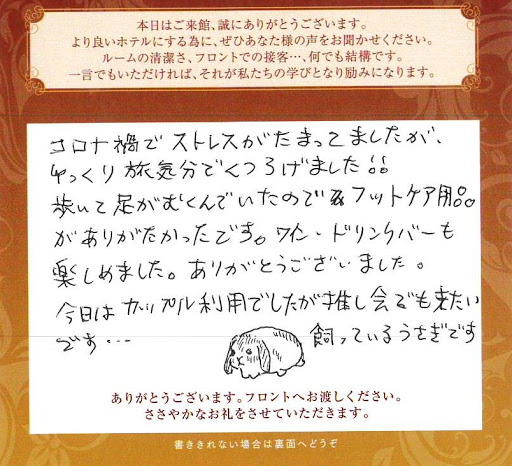 本日はご来館、誠にありがとうございます。
より良いホテルにする為に、ぜひあなた様の声をお聞かせください。
ルームの清潔さ、フロントでの接客…、何でも結構です。
一言でもいただければ、それが私たちの学びとなり励みになります。
コロナ禍でストレスがたまってましたが、
ゆっくり旅気分でくつろげました
歩いて足がむくんでいたのでフットケア用品
がありがたかったです。ワイン・ドリンクバーも
楽しめました。ありがとうございました。
今日はカップル利用でしたが推し会でも来たい
です…
飼っているうさぎです
ありがとうございます。フロントへお渡しください。
ささやかなお礼をさせていただきます。
書ききれない場合は裏面へどうぞ